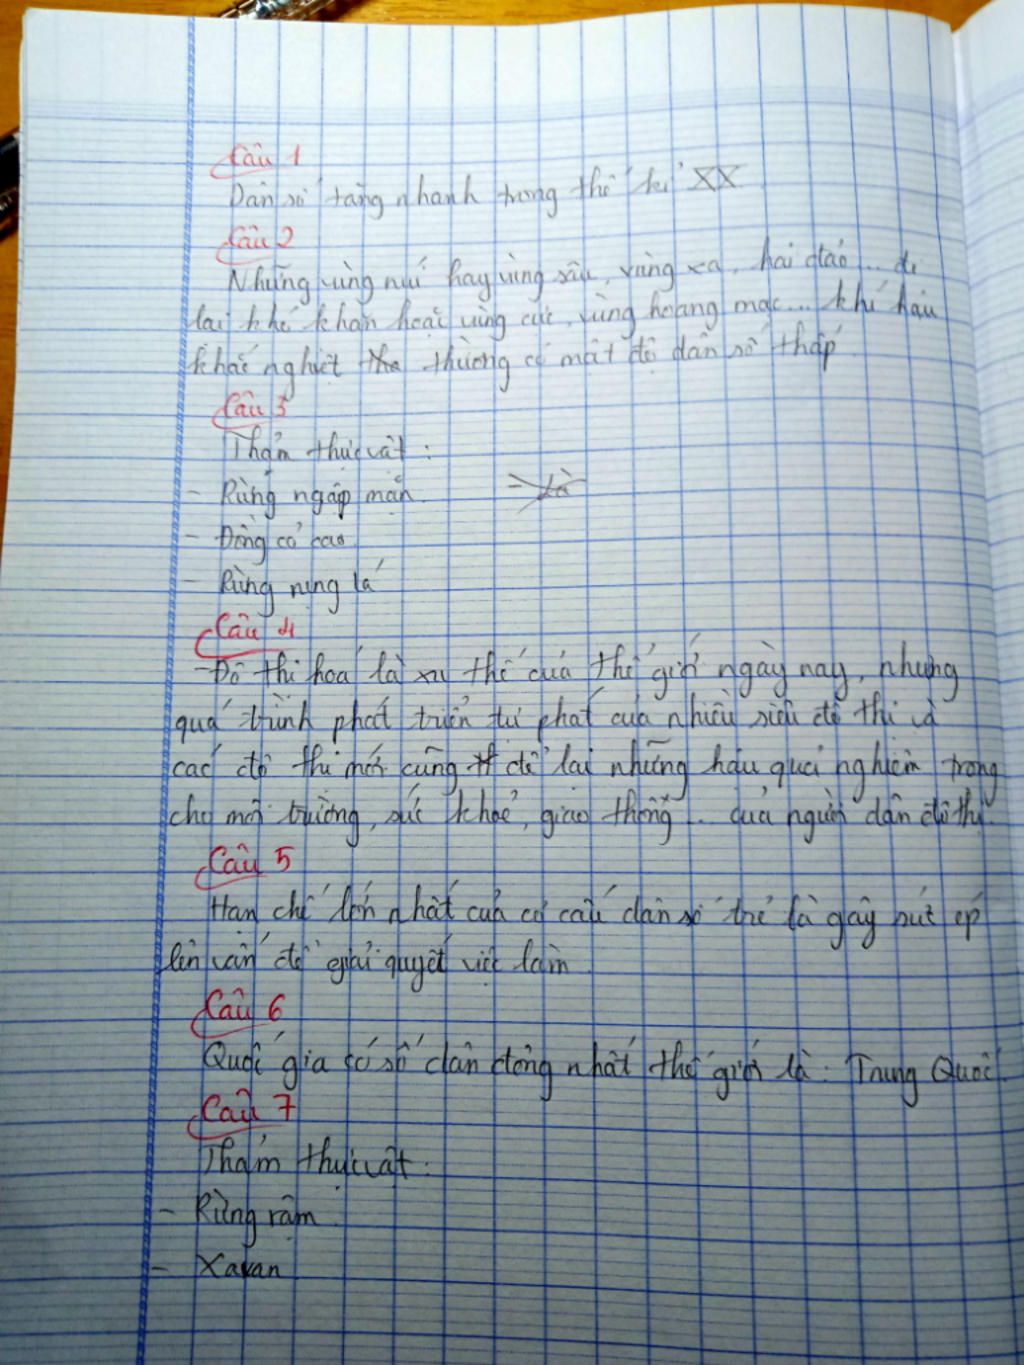 Câu 1
Dân số tăng nhanh trong thế kỉ XX
Câu 2
Những vùng núi hay vùng sâu, vùng xa, hải đảo... đi
lại khó khăn hoặc vùng cực, vùng hoang mạc... khí hậu
khắc nghiệt tha thường có mật độ dân số thấp
Câu 3
Thảm thực vật :
- Rừng ngập mặn. = Là
- Đồng cỏ cao
- Rừng rụng lá
Câu 4
- Đô thị hoá là xu thế của thế giới ngày nay, nhưng
quá trình phát triển tự phát của nhiều siêu đô thị và
các đô thị mới cũng đề lại những hậu quả nghiêm trọng
cho môi trường, sức khoẻ, giao thông... của người dân đô thị.
Câu 5
Hạn chế lớn nhất của cơ cấu dân số trẻ là gây sức ép
lên vấn đề giải quyết việc làm.
Câu 6
Quốc gia có số dân đông nhất thế giới là : Trung Quốc.
Câu 7
Thảm thực vật :
- Rừng rậm.
- Xavan